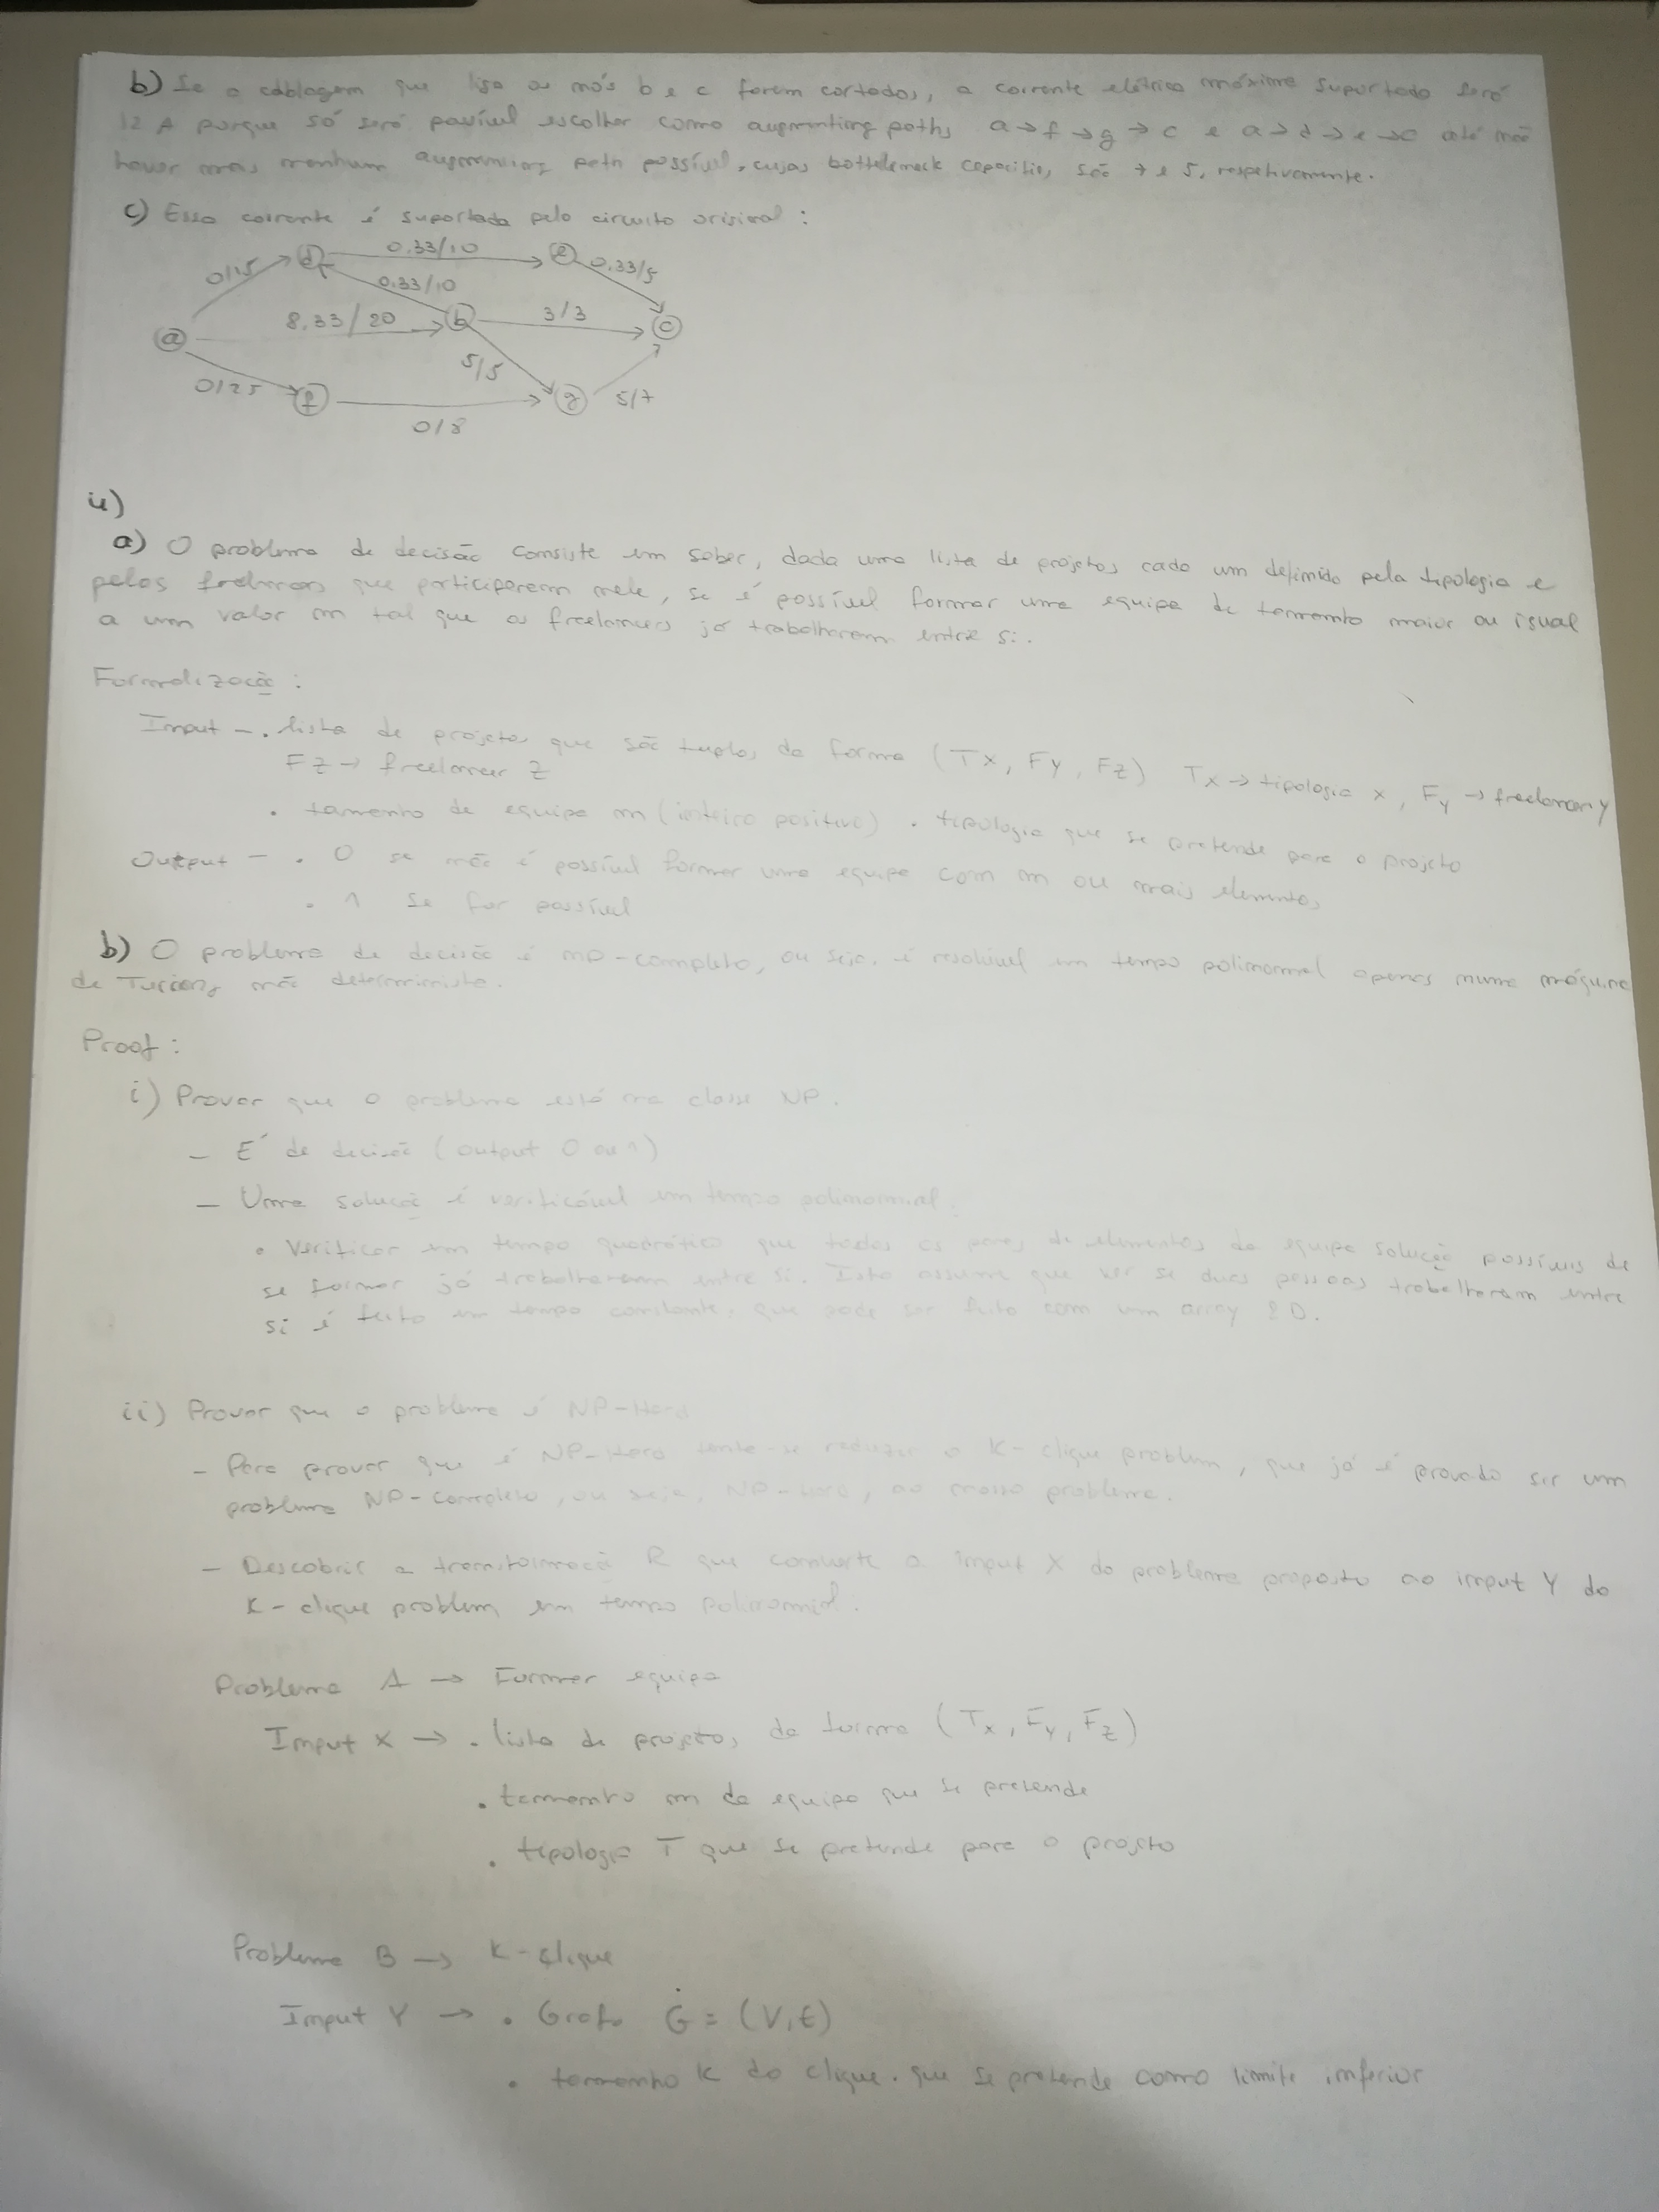 b) Se a cablagem que liga os nós b e c forem cortados, a corrente elétrica máxima suportada será
12 A porque só será possível escolher como augmenting paths a → f → g → c e a → d → e → c até não
haver mais nenhum augmenting path possível, cujas bottleneck capacities são 7 e 5, respetivamente.
c) Essa corrente é suportada pelo circuito original:
0.33/10
0/15
d
e
0.33/5
0.33/10
8.33/20
b
3/3
c
a
5/5
0/25
f
g
5/7
0/8
4)
a) O problema de decisão consiste em saber, dada uma lista de projetos cada um definido pela tipologia e
pelos freelancers que participarem nele, se é possível formar uma equipa de tamanho maior ou igual
a um valor m tal que os freelancers já trabalharam entre si.
Formalização:
Input - . lista de projetos que são tuplos da forma (Tx, Fy, Fz) Tx → tipologia x, Fy → freelancer y
Fz → freelancer z
. tamanho de equipa m (inteiro positivo) . tipologia que se pretende para o projeto
Output - . 0 se não é possível formar uma equipa com m ou mais elementos
. 1 se for possível
b) O problema de decisão é np-completo, ou seja, é resolúvel em tempo polinomial apenas numa máquina
de Turing não determinista.
Proof:
i) Provar que o problema está na classe NP.
- É de decisão (output 0 ou 1)
- Uma solução é verificável em tempo polinomial.
. Verificar em tempo quadrático que todos os pares de elementos da equipa solução possíveis de
se formar já trabalharam entre si. Isto assume que ver se duas pessoas trabalharam entre
si é feito em tempo constante, que pode ser feito com um array 2D.
ii) Provar que o problema é NP-Hard
- Para provar que é NP-Hard tenta-se reduzir o K-clique problem, que já é provado ser um
problema NP-completo, ou seja, NP-Hard, ao nosso problema.
- Descobrir a transformação R que converte o input X do problema proposto ao input Y do
K-clique problem em tempo polinomial.
Problema A → Formar equipa
Input X → . lista de projetos da forma (Tx, Fy, Fz)
. tamanho m da equipa que se pretende
. tipologia T que se pretende para o projeto
Problema B → K-clique
Input Y → . Grafo G = (V,E)
. tamanho K do clique que se pretende como limite inferior